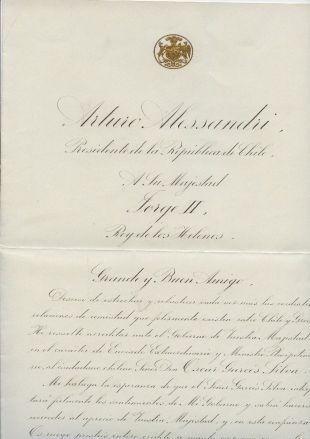 Arturo Alessandri,
Presidente de la República de Chile,
A Su Majestad
Jorge II,
Rey de los Helenos.
Grande y Buen Amigo:
Deseoso de estrechar y robustecer cada vez más las cordiales
relaciones de amistad que felizmente existen entre Chile y Grecia,
He resuelto acreditar ante el Gobierno de Vuestra Majestad
en el carácter de Enviado Extraordinario y Ministro Plenipotenci-
ario, al ciudadano chileno Señor Don Oscar Garcés Silva.
Me halaga la esperanza de que el Señor Garcés Silva
los sentimientos de Mi Gobierno y sabrá hacerse
al aprecio de Vuestra Majestad, y, en esta confianza